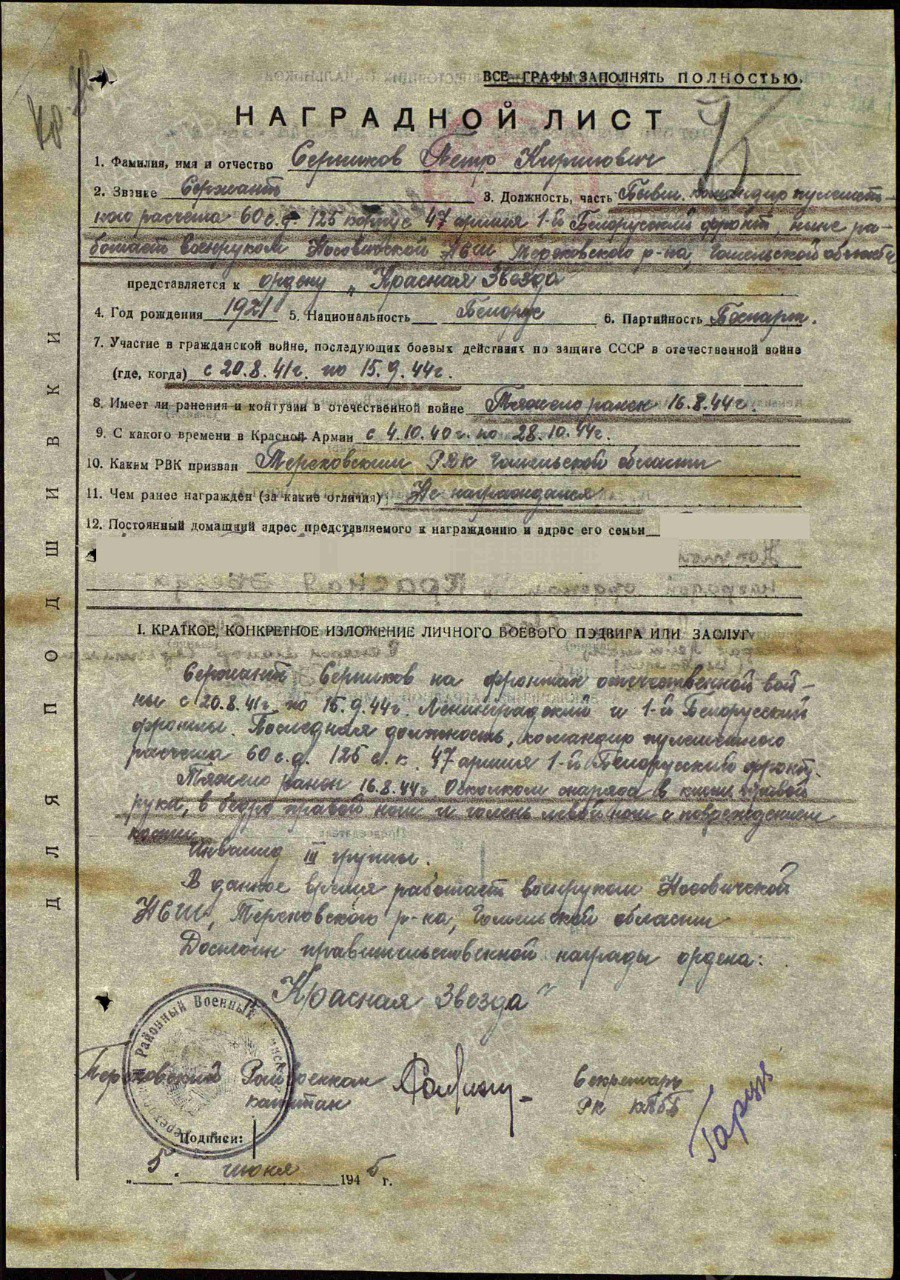 ВСЕ ГРАФЫ ЗАПОЛНЯТЬ ПОЛНОСТЬЮ.
НАГРАДНОЙ ЛИСТ
1. Фамилия, имя и отчество Серников Петр
2. Звание Сержант 3. Должность, часть Бывш. командир пулемет-
ного расчета 60 с.д. 125 корпус 47 армия 1-й Белорусский фронт, ныне ра-
ботает военруком Носовичской НСШ, Тереховского р-на, Гомельской области
представляется к ордену „Красная Звезда
4. Год рождения 1921 5. Национальность Белорус 6. Партийность Беспарт.
7. Участие в гражданской войне, последующих боевых действиях по защите СССР в отечественной войне
(где, когда) с 20.8.41г. по 15.9.44г.
8. Имеет ли ранения и контузии в отечественной войне Тяжело ранен 16.8.44г.
9. С какого времени в Красной Армии с 4.10.40г. по 28.10.44г.
10. Каким РВК призван Тереховским РВК Гомельской области
11. Чем ранее награжден (за какие отличия) Не награждался
12. Постоянный домашний адрес представляемого к награждению и адрес его семьи
I. КРАТКОЕ, КОНКРЕТНОЕ ИЗЛОЖЕНИЕ ЛИЧНОГО БОЕВОГО ПОДВИГА ИЛИ ЗАСЛУГ
Сержант Серников на фронтах отечественной вой-
ны с 20.8.41г. по 15.9.44г. Ленинградский и 1-й Белорусский
фронты. Последняя должность, командир пулеметного
расчета 60 с.д. 125 с.к. 47 армия 1-й Белорусский фронт.
Тяжело ранен 16.8.44г. Осколком снаряда в кисть правой
руки, в бедро правой ноги и голень левой ноги с повреждением
кости.
Инвалид III группы.
В данное время работает военруком Носовичской
НСШ, Тереховского р-на, Гомельской области
Достоин правительственной награды ордена:
„Красная Звезда"
Районный Военный
Тереховский Райвоенком
капитан
Секретарь
РК КПбБ
Подписи:
„5" июня 1945 г.
ДЛЯ ПОДШИВКИ